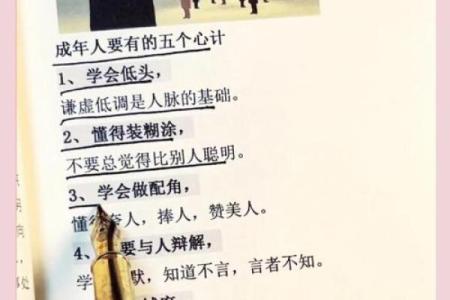 成年人要有的五个心计
1、学会低头，
谦虚低调是人脉的基础。
2、懂得装糊涂，
不要总觉得比别人聪明。
3、学会做配角，
懂 夸人，捧人，赞美人。
4、 要与人辩解，
学 默，知道不言，言者不知。